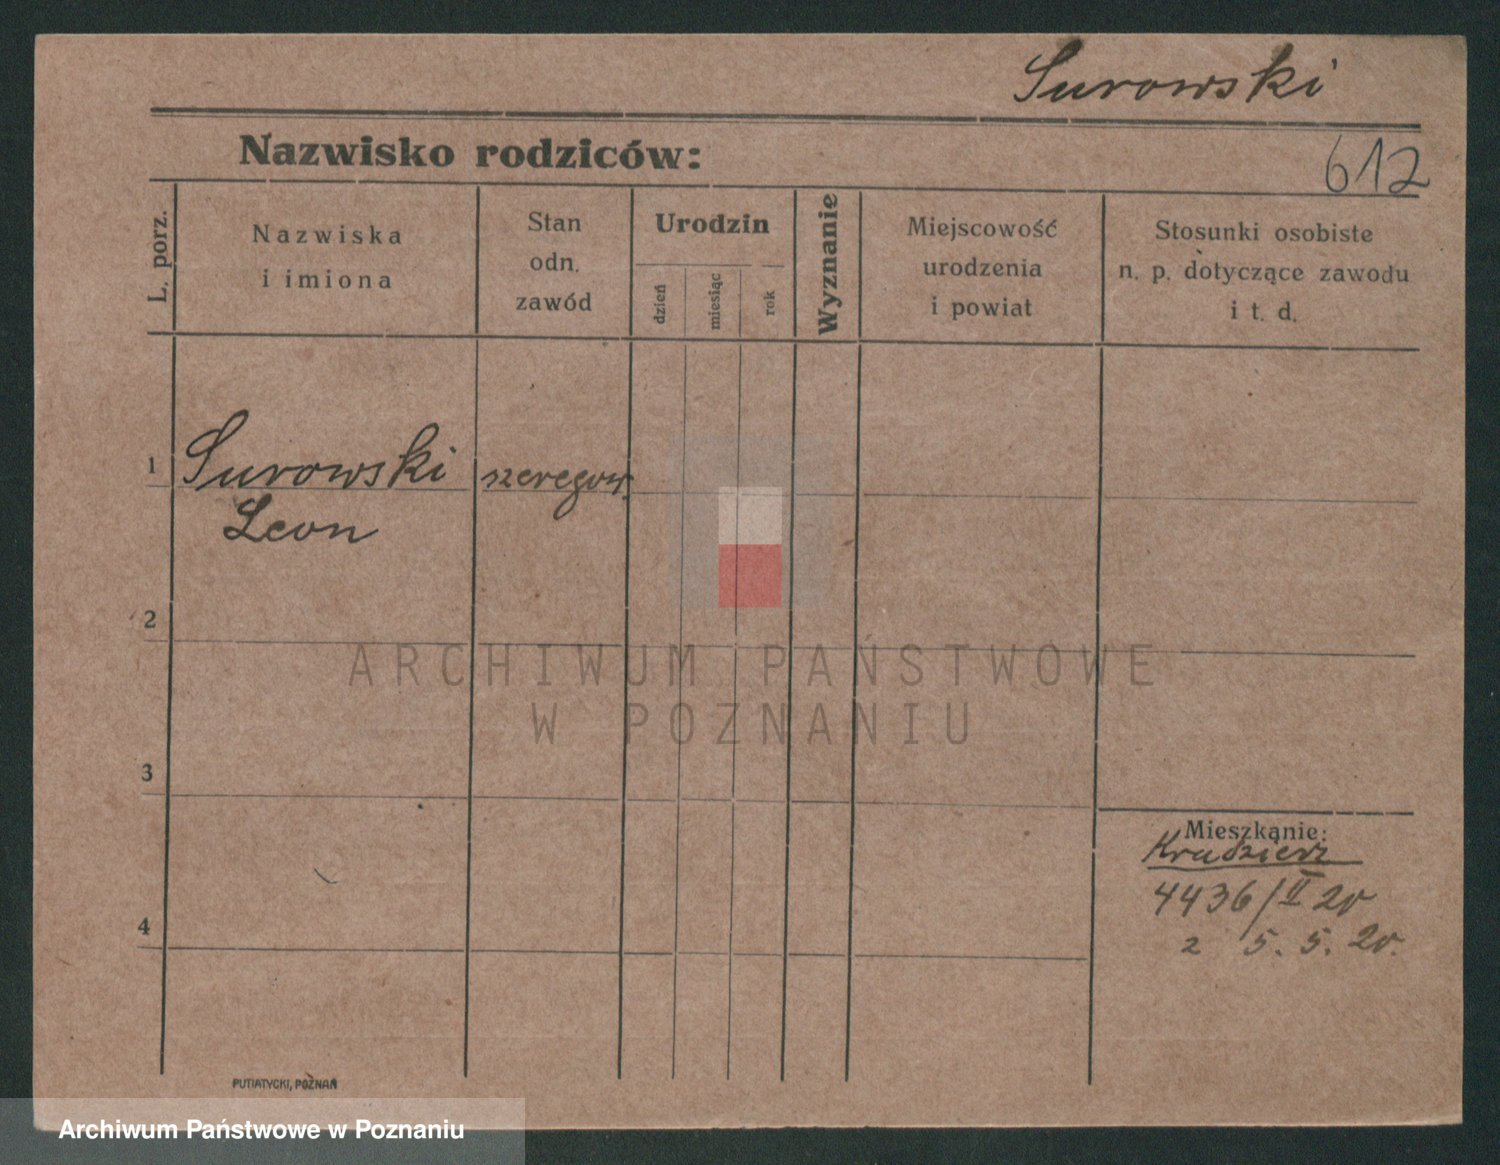 Surowski
Nazwisko rodziców:
612
L. porz.
Nazwiska
i imiona
Stan
odn.
zawód
Urodzin
dzień
miesiąc
rok
Wyznanie
Miejscowość
urodzenia
i powiat
Stosunki osobiste
n. p. dotyczące zawodu
i t. d.
1
Surowski
szeregow.
Leon
2
ARCHIWUM PAŃSTWOWE
W POZNANIU
3
Mieszkanie:
4436/II 20
z 5. 5. 20.
4
PUTIATYCKI, POZNAŃ
Archiwum Państwowe w Poznaniu